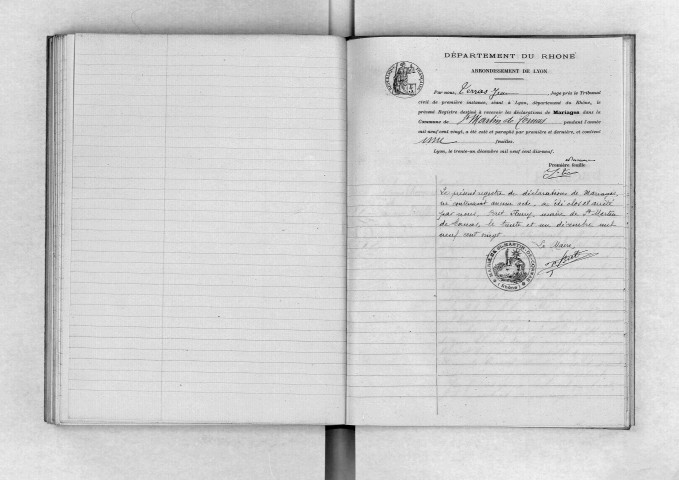 DÉPARTEMENT DU RHONE
ARRONDISSEMENT DE LYON.
Par nous, Terras Jean Juge près le Tribunal
civil de première instance, séant à Lyon, département du Rhône, le
présent Registre destiné à recevoir les déclarations de Mariages dans la
Commune de St Martin de Cornas pendant l'année
mil neuf cent vingt, a été coté et paraphé par première et dernière, et contient
une feuilles.
Lyon, le trente-un décembre mil neuf cent dix-neuf.
Première feuille
Le présent registre de déclarations de Mariages,
ne contenant aucun acte, a été clos et arrêté
par nous, maire de St Martin
de Cornas, le trente et un décembre mil
neuf cent vingt
Le Maire,
MAIRIE DE ST-MARTIN-DE-CORNAS
(Rhône)